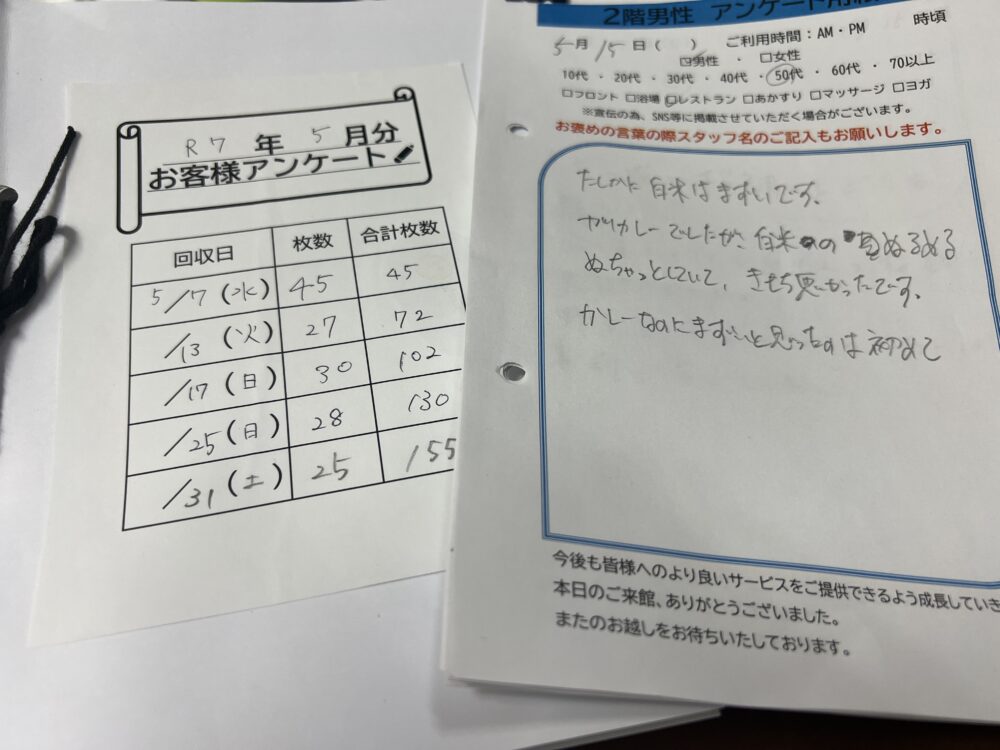 R7年 5月分
お客様アンケート
回収日 枚数 合計枚数
5/7(水) 45 45
/13(火) 27 72
/17(日) 30 102
/25(日) 28 130
/31(土) 25 155
2階男性 アンケート用
5月15日( ) ご利用時間:AM・PM 時頃
☑男性 ・ □女性
10代 ・ 20代 ・ 30代 ・ 40代 ・ 50代 ・ 60代 ・ 70以上
□フロント □浴場 □レストラン □あかすり □マッサージ □ヨガ
※宣伝の為、SNS等に掲載させていただく場合がございます。
お褒めの言葉の際スタッフ名のご記入もお願いします。
たしかに 白米はまずいです。
カレーでしたが 白米の ぬるぬる
ぬちゃっとしていて、きもち悪かったです。
カレーなのにまずいと思ったのは初めて
今後も皆様へのより良いサービスをご提供できるよう成長していき
本日のご来館、ありがとうございました。
またのお越しをお待ちいたしております。